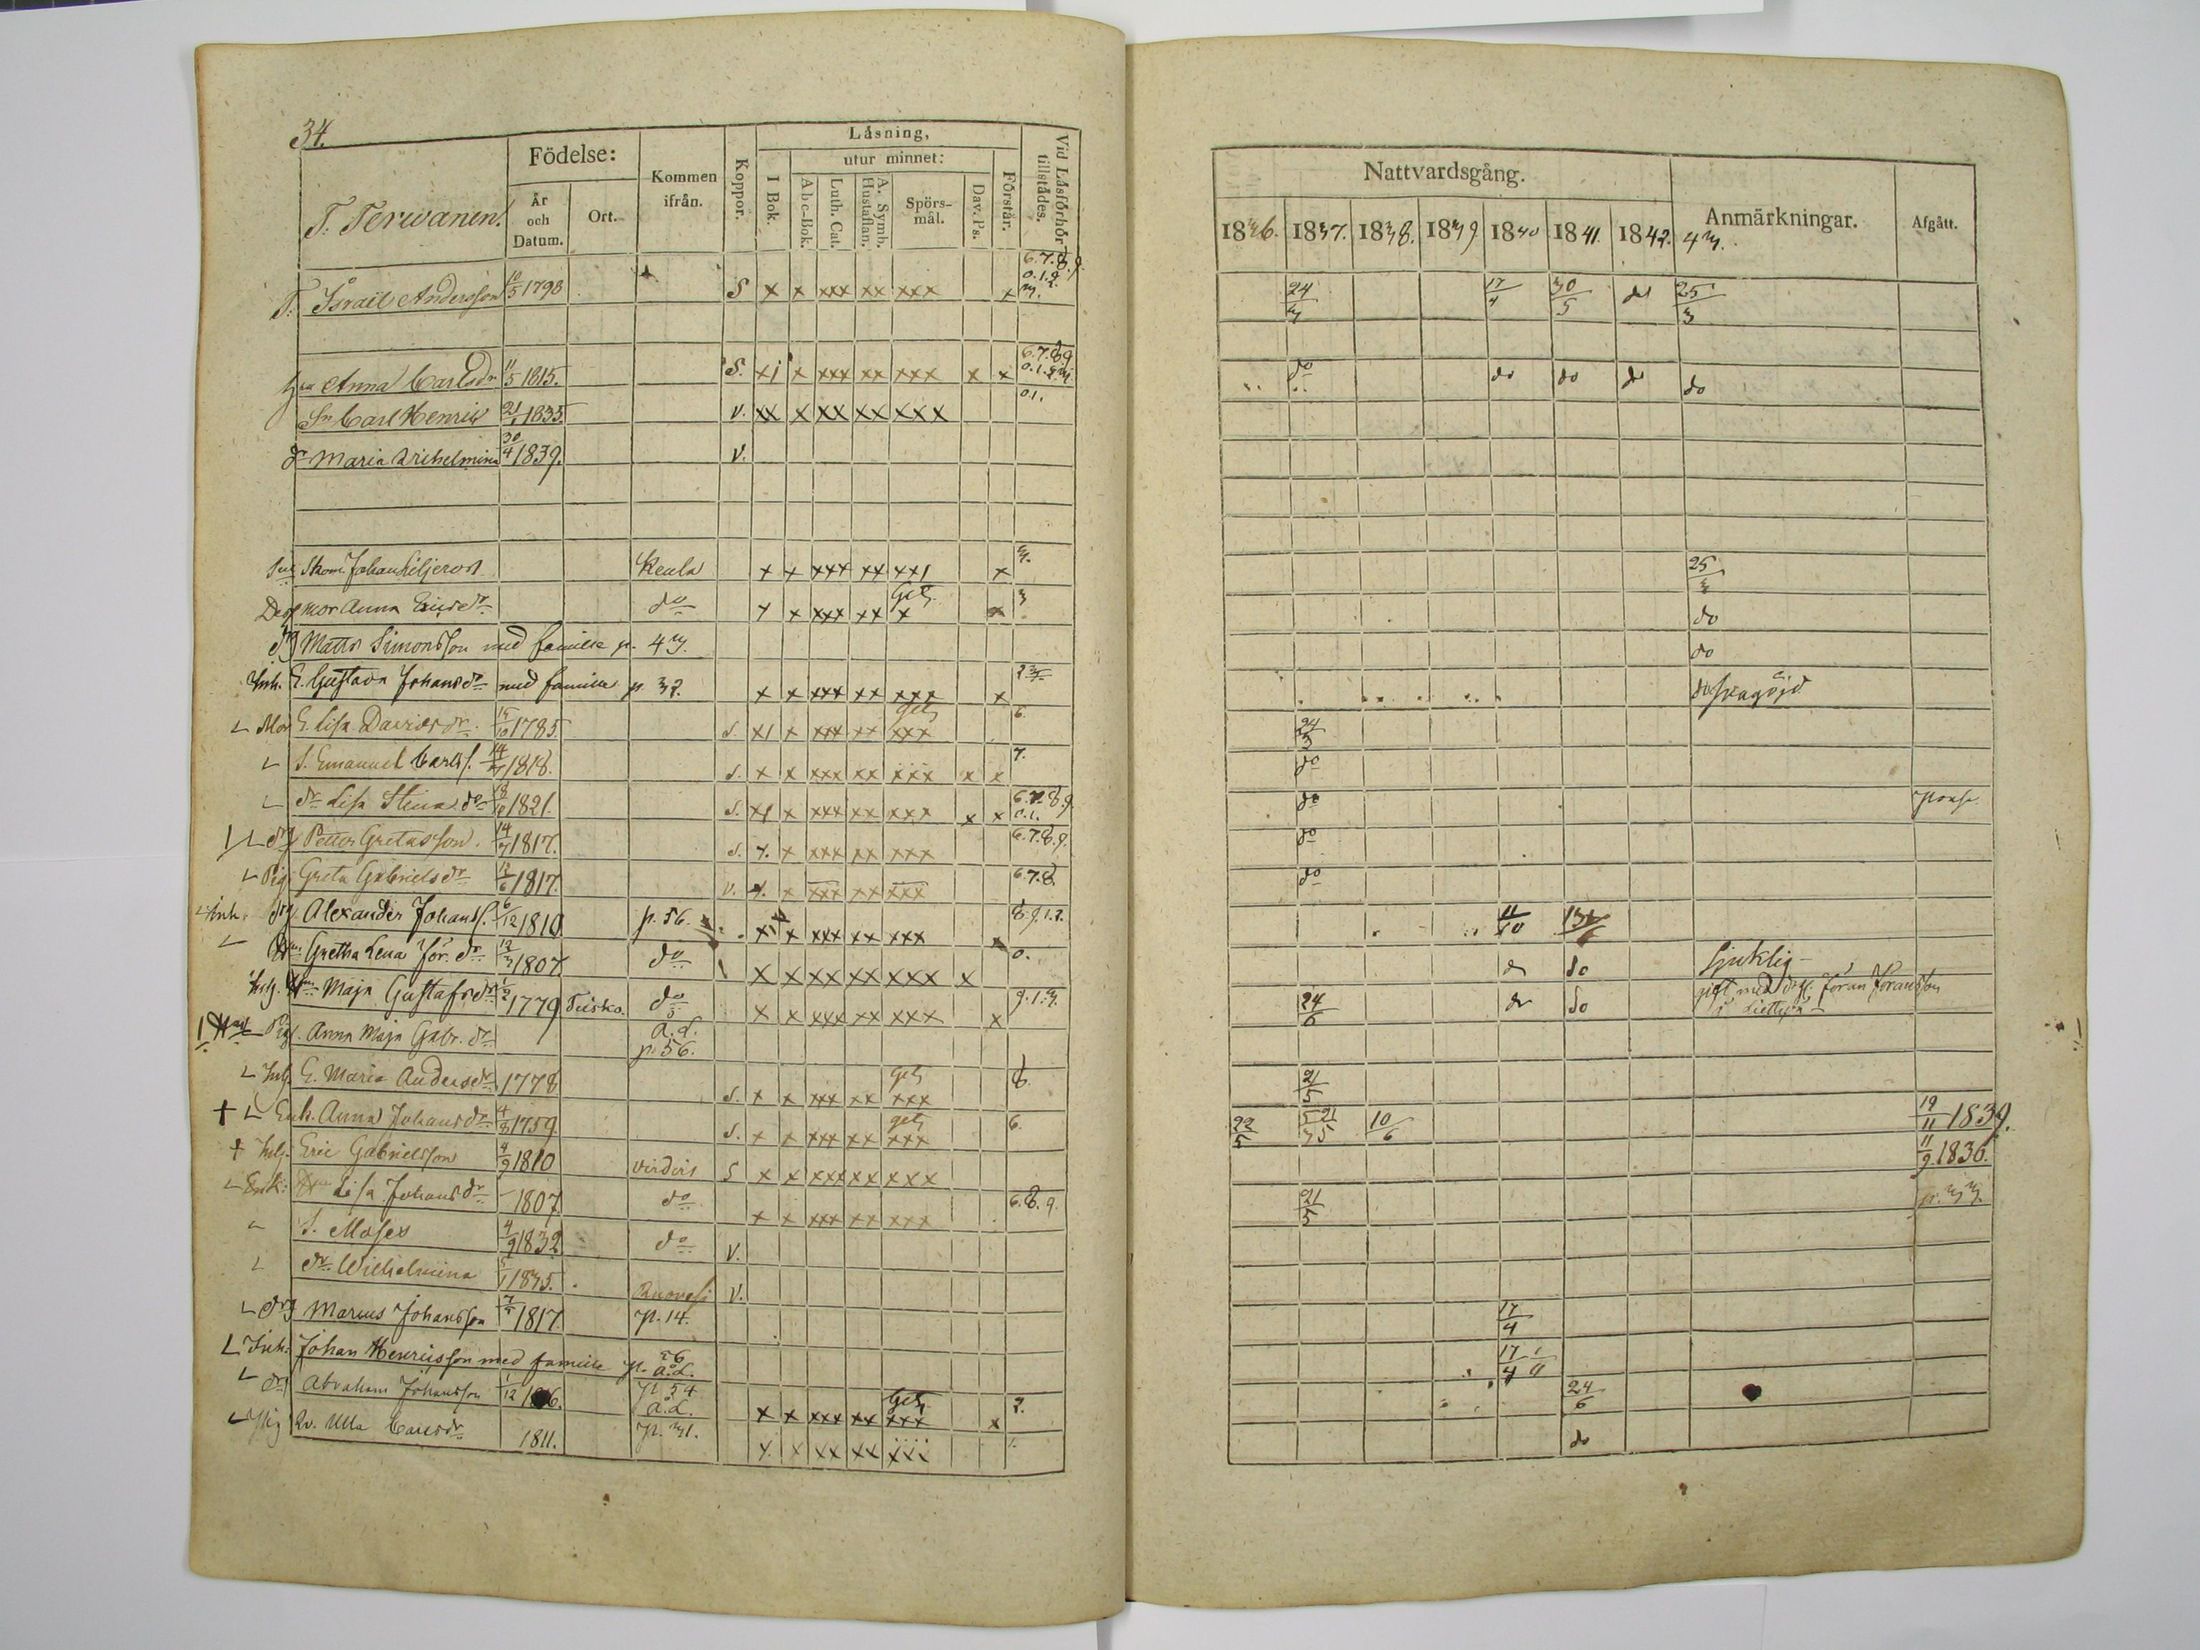 34.
T. Terwanen.
Födelse:
År och Datum.
Ort.
Kommen ifrån.
Koppor.
Läsning,
I Bok.
utur minnet:
Abc-Bok.
Luth. Cat.
A. Symb. Hustaflan.
Spörs-mål.
Dav. Ps.
Förstår.
Vid Läsförhör tillstädes.
T. Israël Andersson 10/5 1798 S x x xxx xx xxx x 6.7.8.9. 0.1.2. 3.
Hu Anna Carlsdr 11/5 1815. S. x1 x xxx xx xxx x x 6.7.8.9 0.1.2.3.
Sn Carl Henric 21/1 1835. v. xx x xx xx xxx 0.1.
dr Maria Wilhelmina 30/4 1839. v.
Skom. Johan Liljeroos Keula x x xxx xx xx1 x 3.
mor Anna do x x xxx xx x x 3
drg Matts Simonsson med familie p. 43.
Inh. E. Gustava Johansdr med familie p. 32. x x xxx xx xxx x
L Mor E. Lisa Davidsdr 1785. S. x1 x xxx xx xxx 6.
L S. Emanuel Carlss. 1818. S. x x xxx xx xxx x x 7.
L dr Lisa Stina do 1821. S. x1 x xxx xx xxx x x 6.7.8.9. 0.1.
L drg Petter Gretasson. 14/7 1817. S. x x xxx xx xxx 6.7.8.9.
L Pig. Greta Gabrielsdr 12/6 1817. v. x x xxx xx xxx 6.7.8.
Inh. drg Alexander Johanss. 6/12 1810 p. 56. x x xxx xx xxx x 8.9.1.2.
L Hu. Gretha Lena Jör. dr 12/3 1807 do x x xx xx xxx x 0.
Maja Gustafsdr 1779 do x x xxx xx xxx x 9.1.3.
Pig. Anna Maja Gabr. dr a.d. p. 56.
L E. Maria Andersdr 1778 S. x x xxx xx xxx 8.
+ L Enk. Anna Johansdr 4/8 1759. S. x x xxx xx xxx 6.
+ Eric Gabrielsson 4/9 1810 Virdois S x x xxx xx xxx
L Enk: Lisa Johansdr 1807 do x x xxx xx xxx 6.8.9.
S. Moses 4/9 1832 do v.
L dr Wilhelmina 1835. Ruovesi v.
L drg Marcus Johansson 1817 p. 14.
L Inh: Johan Henricsson med familie p. 56 a.d.
L drg Abraham Johansson 1/12 p. 54 a.d. x x xxx xx xxx x 2.
L Pig Ulla Carlsdr 1811. p. 31. x x xx xx xxx 1.
Nattvardsgång.
Anmärkningar.
Afgått.
1836. 1837. 1838. 1839 1840 1841. 1842. 43.
24/3 17/4 30/5 do 25/3
do do do do do
25/3
do
do
do
24/3
do
do
do
do
11/10 13/6
do do Sjuklig
24/6 do do gift med drg. Jöran Göransson
21/5
22/5 5/3 21/5 10/6 19/11 1839.
11/9 1836.
21/5 p. 33.
17/4
17/4
24/6
do